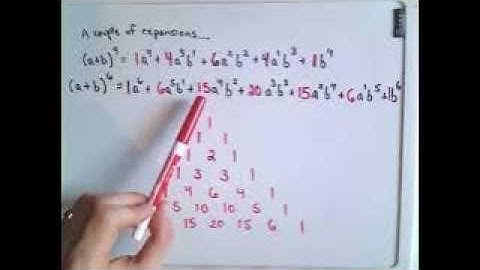 A couple of expansions...
(a+b)⁴ = 1a⁴ + 4a³b¹ + 6a²b² + 4a¹b³ + 1b⁴
(a+b)⁶ = 1a⁶ + 6a⁵b¹ + 15a⁴b² + 20a³b³ + 15a²b⁴ + 6a¹b⁵ + 1b⁶
1
1
1 2 1
1 3 3 1
1 4 6 4 1
5 10 10 5 1
15 20 15 6 1